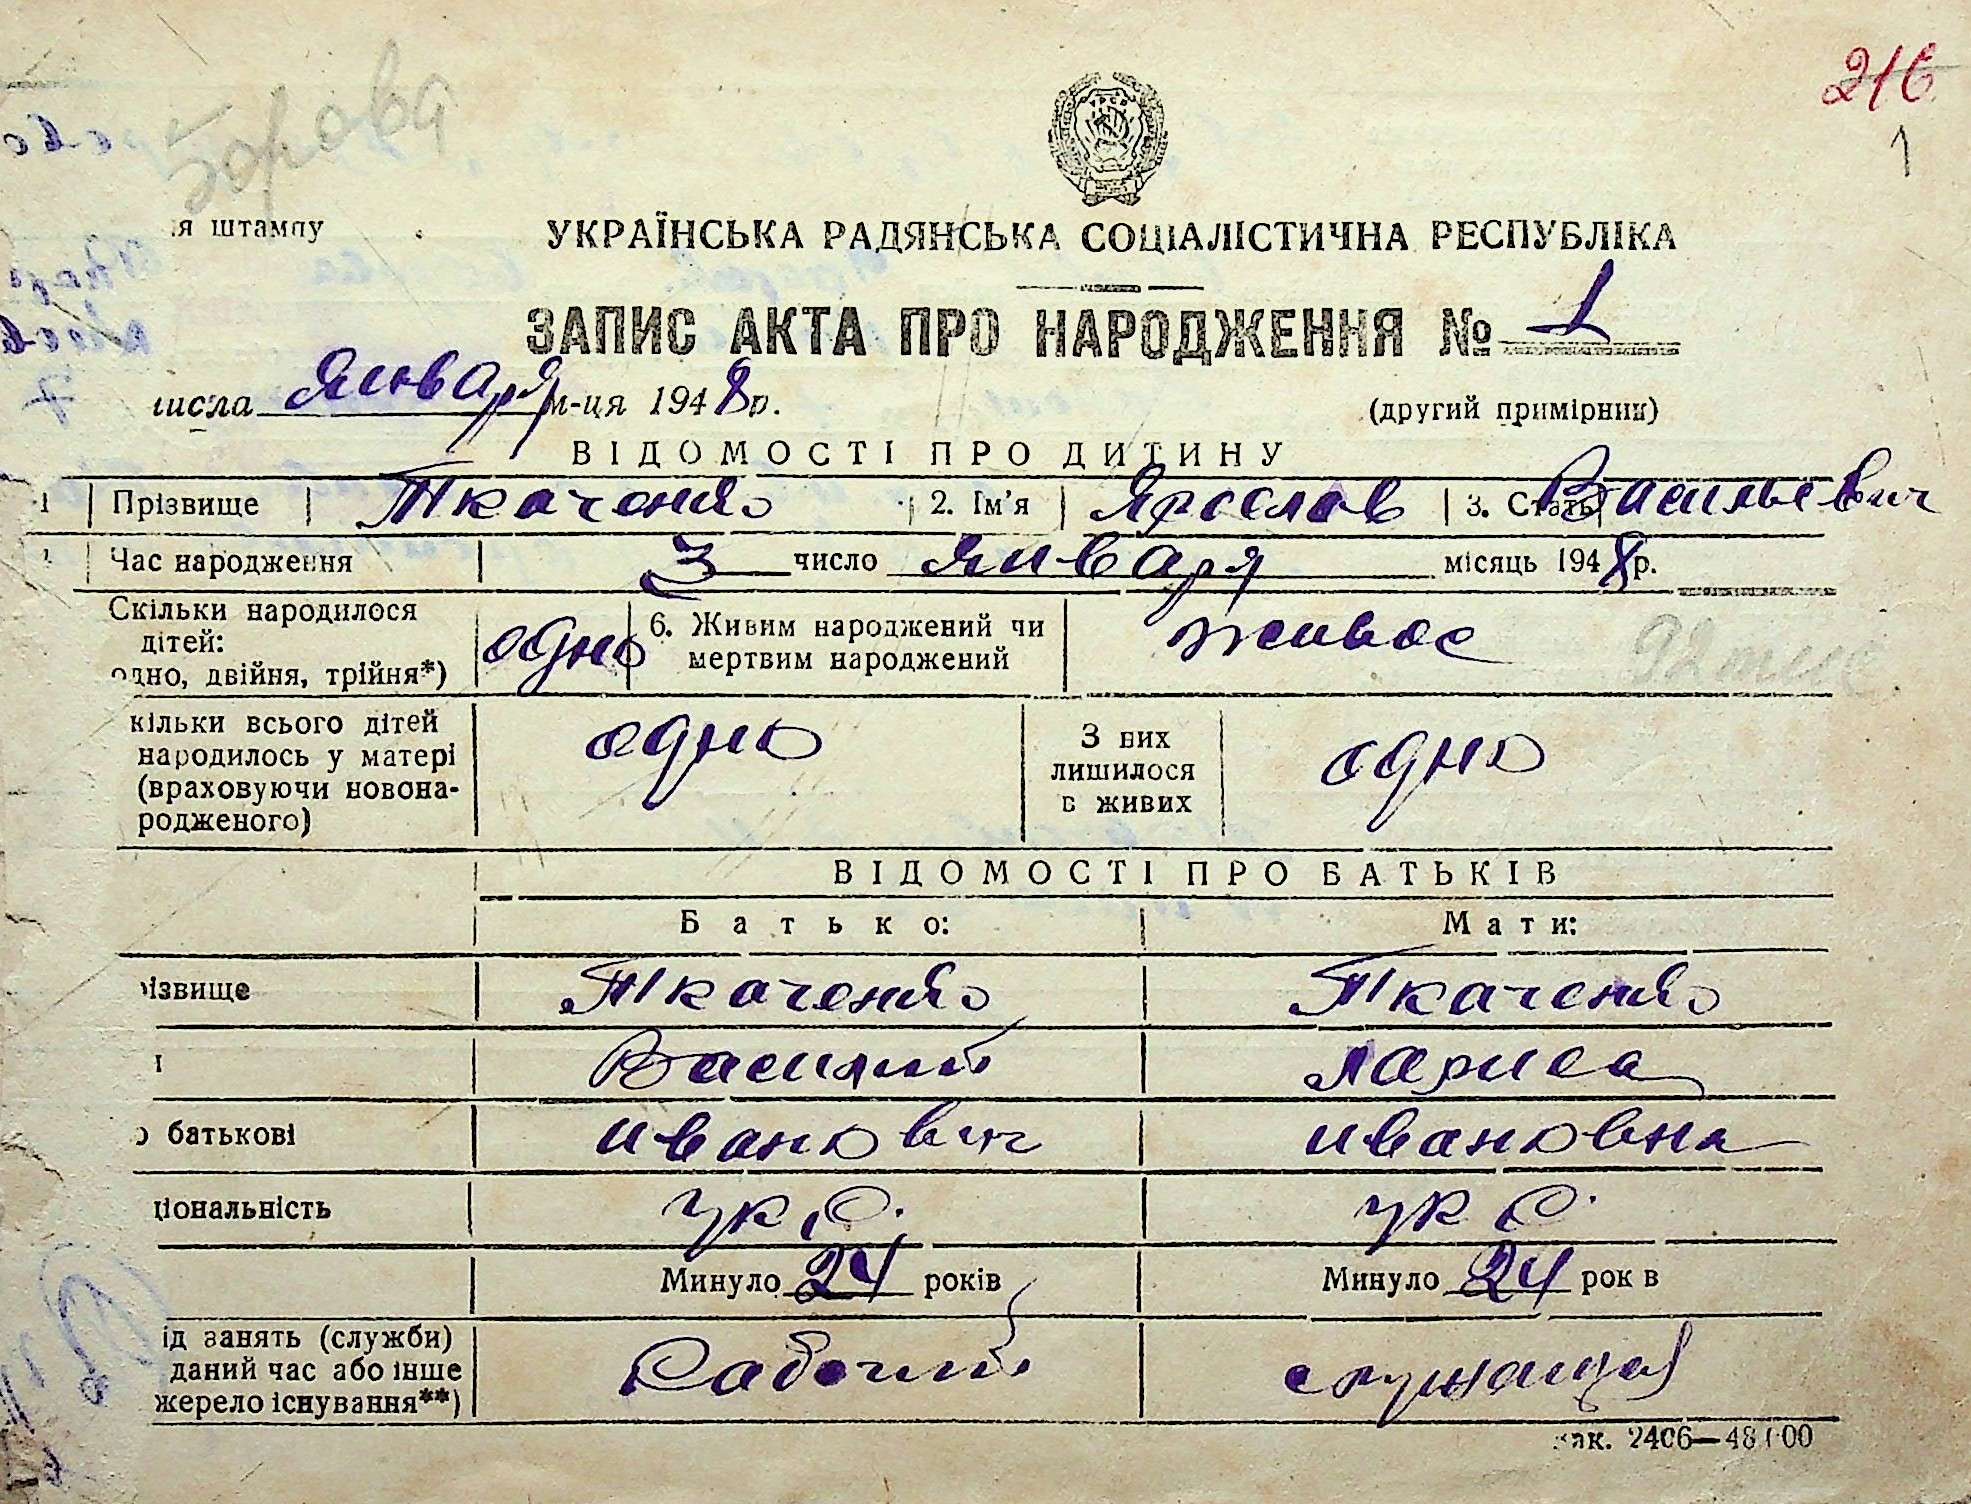 Борова
216
1
ія штампу
УКРАЇНСЬКА РАДЯНСЬКА СОЦІАЛІСТИЧНА РЕСПУБЛІКА
ЗАПИС АКТА ПРО НАРОДЖЕННЯ № 1
числа января м-ця 1948 р.
(другий примірник)
ВІДОМОСТІ ПРО ДИТИНУ
1 Прізвище Ткаченко 2. Ім'я Ярослав 3. Стать Васильевич
Час народження 3 число января місяць 1948 р.
Скільки народилося дітей: одно 6. Живим народжений чи живое
одно, двійня, трійня*) мертвим народжений
кільки всього дітей одно З них одно
народилось у матері лишилося
(враховуючи новона- в живих
родженого)
ВІДОМОСТІ ПРО БАТЬКІВ
Батько: Мати:
різвище Ткаченко Ткаченко
Василий Лариса
о батькові Иванович Ивановна
ціональність укр. укр.
Минуло 24 років Минуло 24 рок в
ід занять (служби) Рабочий служащая
даний час або інше
жерело існування**)
зак. 2406—48100